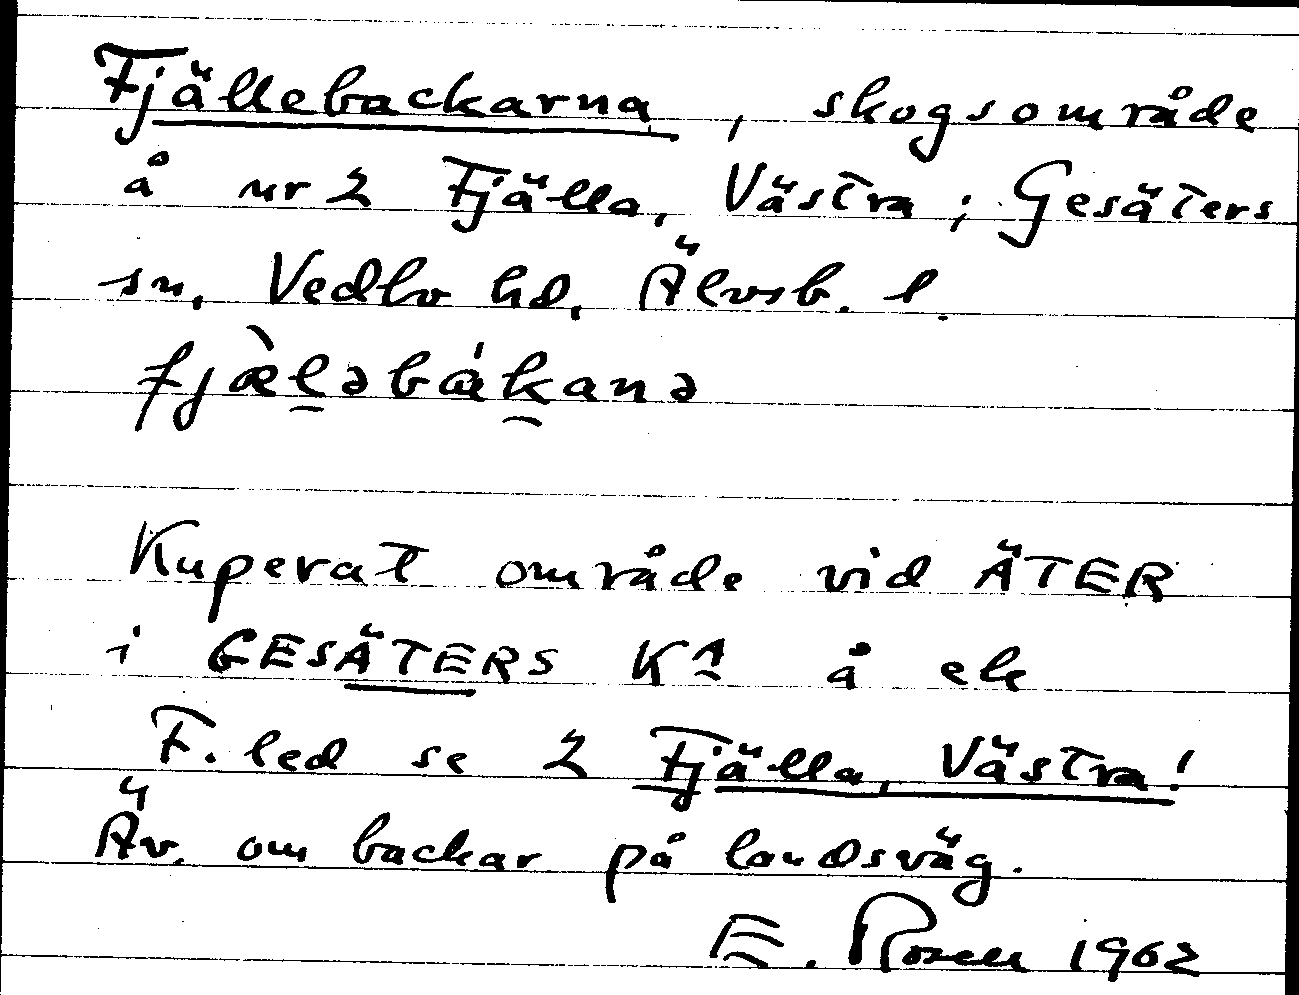 Fjällebackarna, skogsområde
å nr 2 Fjälla, Västra; Gesäters
sn, Vedbo hd, Älvsb. l.
fjæ̀l̠əbák̠anə
Kuperat område vid ÄTER
i GESÄTERS KA å ek
F. led se 2 Fjälla, Västra!
Äv. om backar på landsväg.
E. Rosell 1962